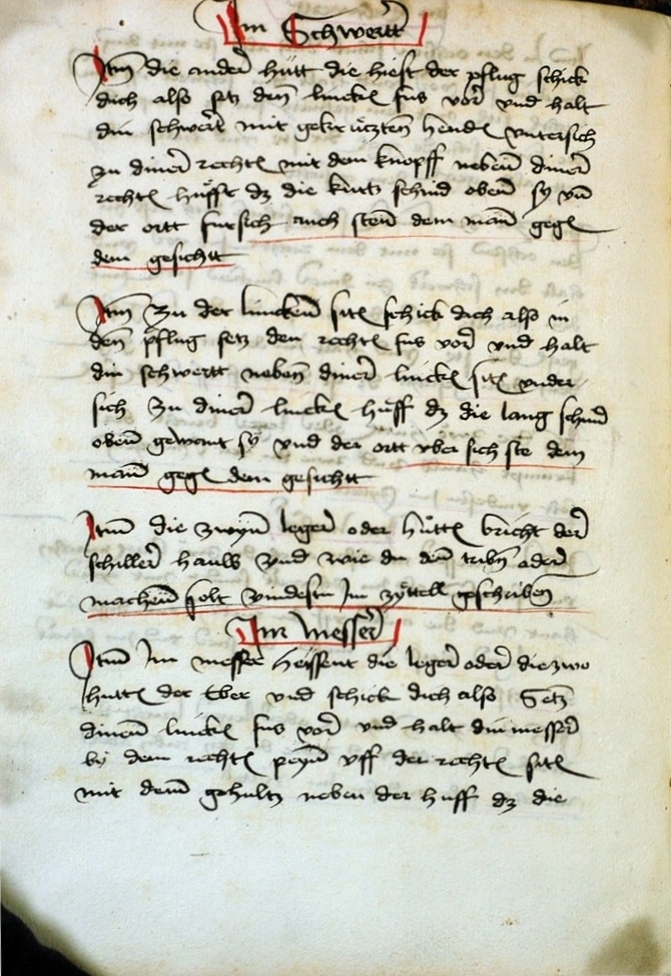 Im Schwertt
Itm die ander hütt die hiest der pflug schick
dich also setz den linckē fus vor vnd halt
din schwert mit gekrützten hendē vntersich
zu diner rechtē mit dem knopff nebenn diner
rechtē hüfft dz die kurtz schnid obenn sy vñ
der ortt fursich auch stenn dem mañ gegē
dem gesichtt
Itm zu der linckenn sitē schick dich also in
denn pflug setz den rechtē fus vor vnd halt
din schwertt nebenn diner linckē sitē vnder
sich zu diner linckē huff dz die lang schnid
obenn gewant sy vnd der ortt vber sich ste dem
mañ gegē dem gesichtt
Itm die zwynn leger oder hüttē bricht der
schiller hauw vnd wie du den tribn oder
machenn solt vindestu Im zyttell geschribenn
Im messer
Itm Im messer heyssent die leger oder die zwo
huttē der Eber vnd schick dich also Setz
dinenn linckē fus vor vnd halt din messer
by dem rechtē peynn vff der rechtē sitē
mit dem gehultz neben der huff dz die